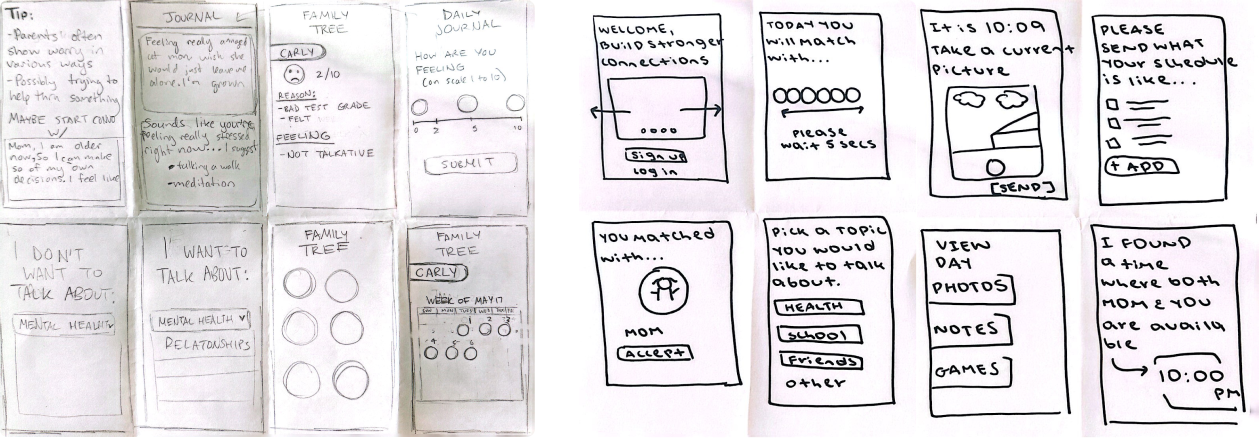 TIP:
-Parents often
show worry in
various ways
-Possibly trying to
help thru something
MAYBE START CONVO
W/
Mom, I am older
now, so I can make
so of my own
decisions. I feel like
JOURNAL
Feeling really annoyed
at mom wish she
would just leave me
alone. I'm grown
Sounds like you're
feeling really stressed
right now... I suggest
talking a walk
-meditation
FAMILY
TREE
CARLY
2/10
REASON:
-BAD TEST GRADE
-FELT
FEELING
-NOT TALKATIVE
DAILY
JOURNAL
HOW ARE YOU
FEELING
(on scale 1 to 10)
0 2 5 10
SUBMIT
I DON'T
WANT TO
TALK ABOUT:
MENTAL HEALTH
I WANT TO
TALK ABOUT:
MENTAL HEALTH
RELATONSHIPS
FAMILY
TREE
FAMILY
TREE
CARLY
WEEK OF MAY 17
1 2 3
4 5 6
WELCOME,
Build stronger
connections
Sign up
Log in
TODAY YOU
will match
with...
please
wait 5 secs
It is 10:09
Take a current
picture
[SEND]
PLEASE
SEND WHAT
YOUR SCHEDULE
is like...
+ ADD
YOU Matched
with...
MOM
Accept
Pick a TOPIC
YOU WOULD
like to talk
about.
HEALTH
school
Friends
other
VIEW
DAY
PHOTOS
NOTES
GAMES
I FOUND
a time
where both
MOM & YOU
are availa
ble
10:00
PM